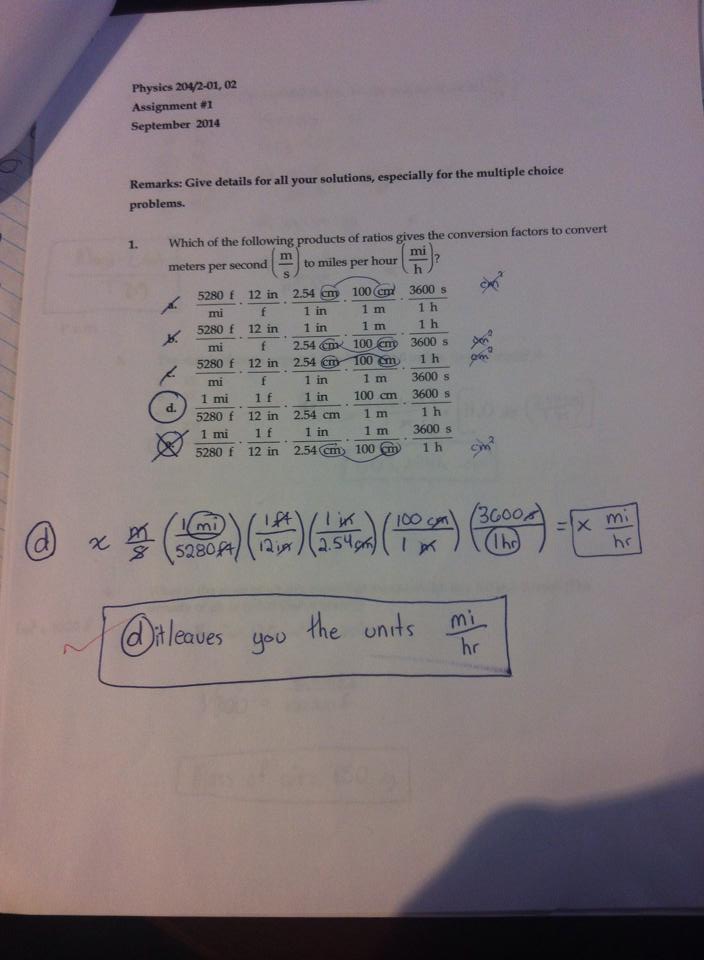 Physics 204/2-01, 02
Assignment #1
September 2014
Remarks: Give details for all your solutions, especially for the multiple choice
problems.
1. Which of the following products of ratios gives the conversion factors to convert
meters per second (m/s) to miles per hour (mi/h)?
a. 5280 f/mi · 12 in/f · 2.54 cm/1 in · 100 cm/1 m · 3600 s/1 h cm²
b. 5280 f/mi · 12 in/f · 1 in/2.54 cm · 1 m/100 cm · 1 h/3600 s cm²
c. 5280 f/mi · 12 in/f · 2.54 cm/1 in · 100 cm/1 m · 1 h/3600 s cm²
d. 1 mi/5280 f · 1 f/12 in · 1 in/2.54 cm · 100 cm/1 m · 3600 s/1 h
e. 1 mi/5280 f · 1 f/12 in · 1 in/2.54 cm · 1 m/100 cm · 3600 s/1 h cm²
d x m/s (1 mi/5280 ft) (1 ft/12 in) (1 in/2.54 cm) (100 cm/1 m) (3600 s/1 hr) = x mi/hr
d it leaves you the units mi/hr